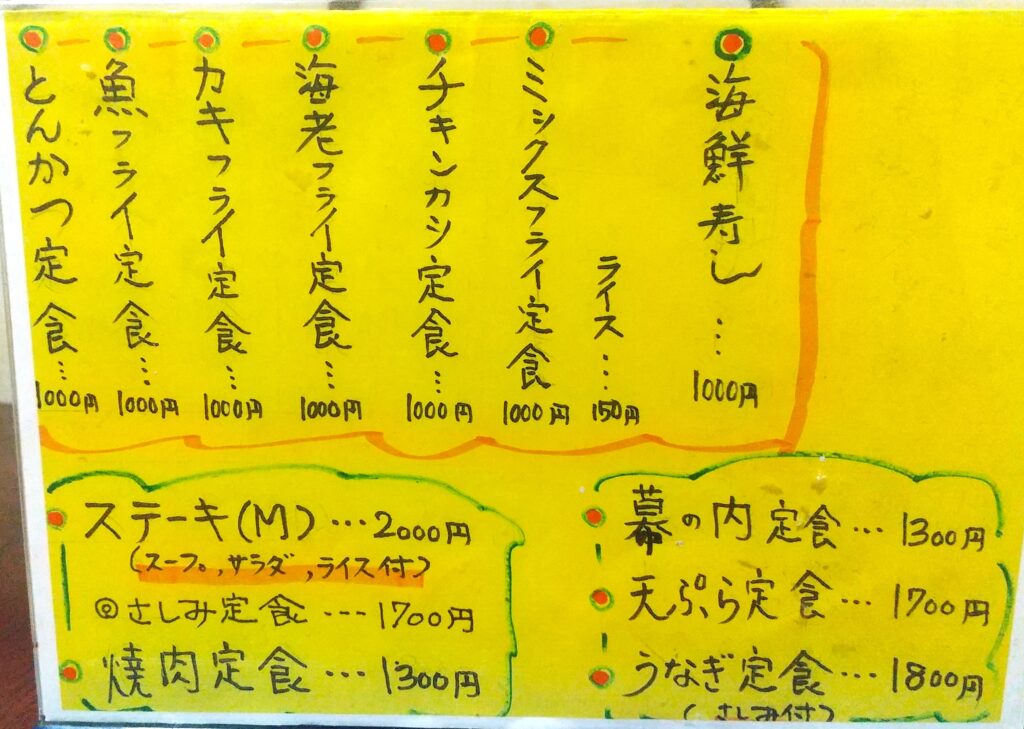 海鮮寿し…1000円
ライス…150円
ミックスフライ定食…1000円
チキンカツ定食…1000円
海老フライ定食…1000円
カキフライ定食…1000円
魚フライ定食…1000円
とんかつ定食…1000円
ステーキ(M)…2000円
(スープ,サラダ,ライス付)
さしみ定食…1700円
焼肉定食…1300円
幕の内定食…1300円
天ぷら定食…1700円
うなぎ定食…1800円
(さしみ付)